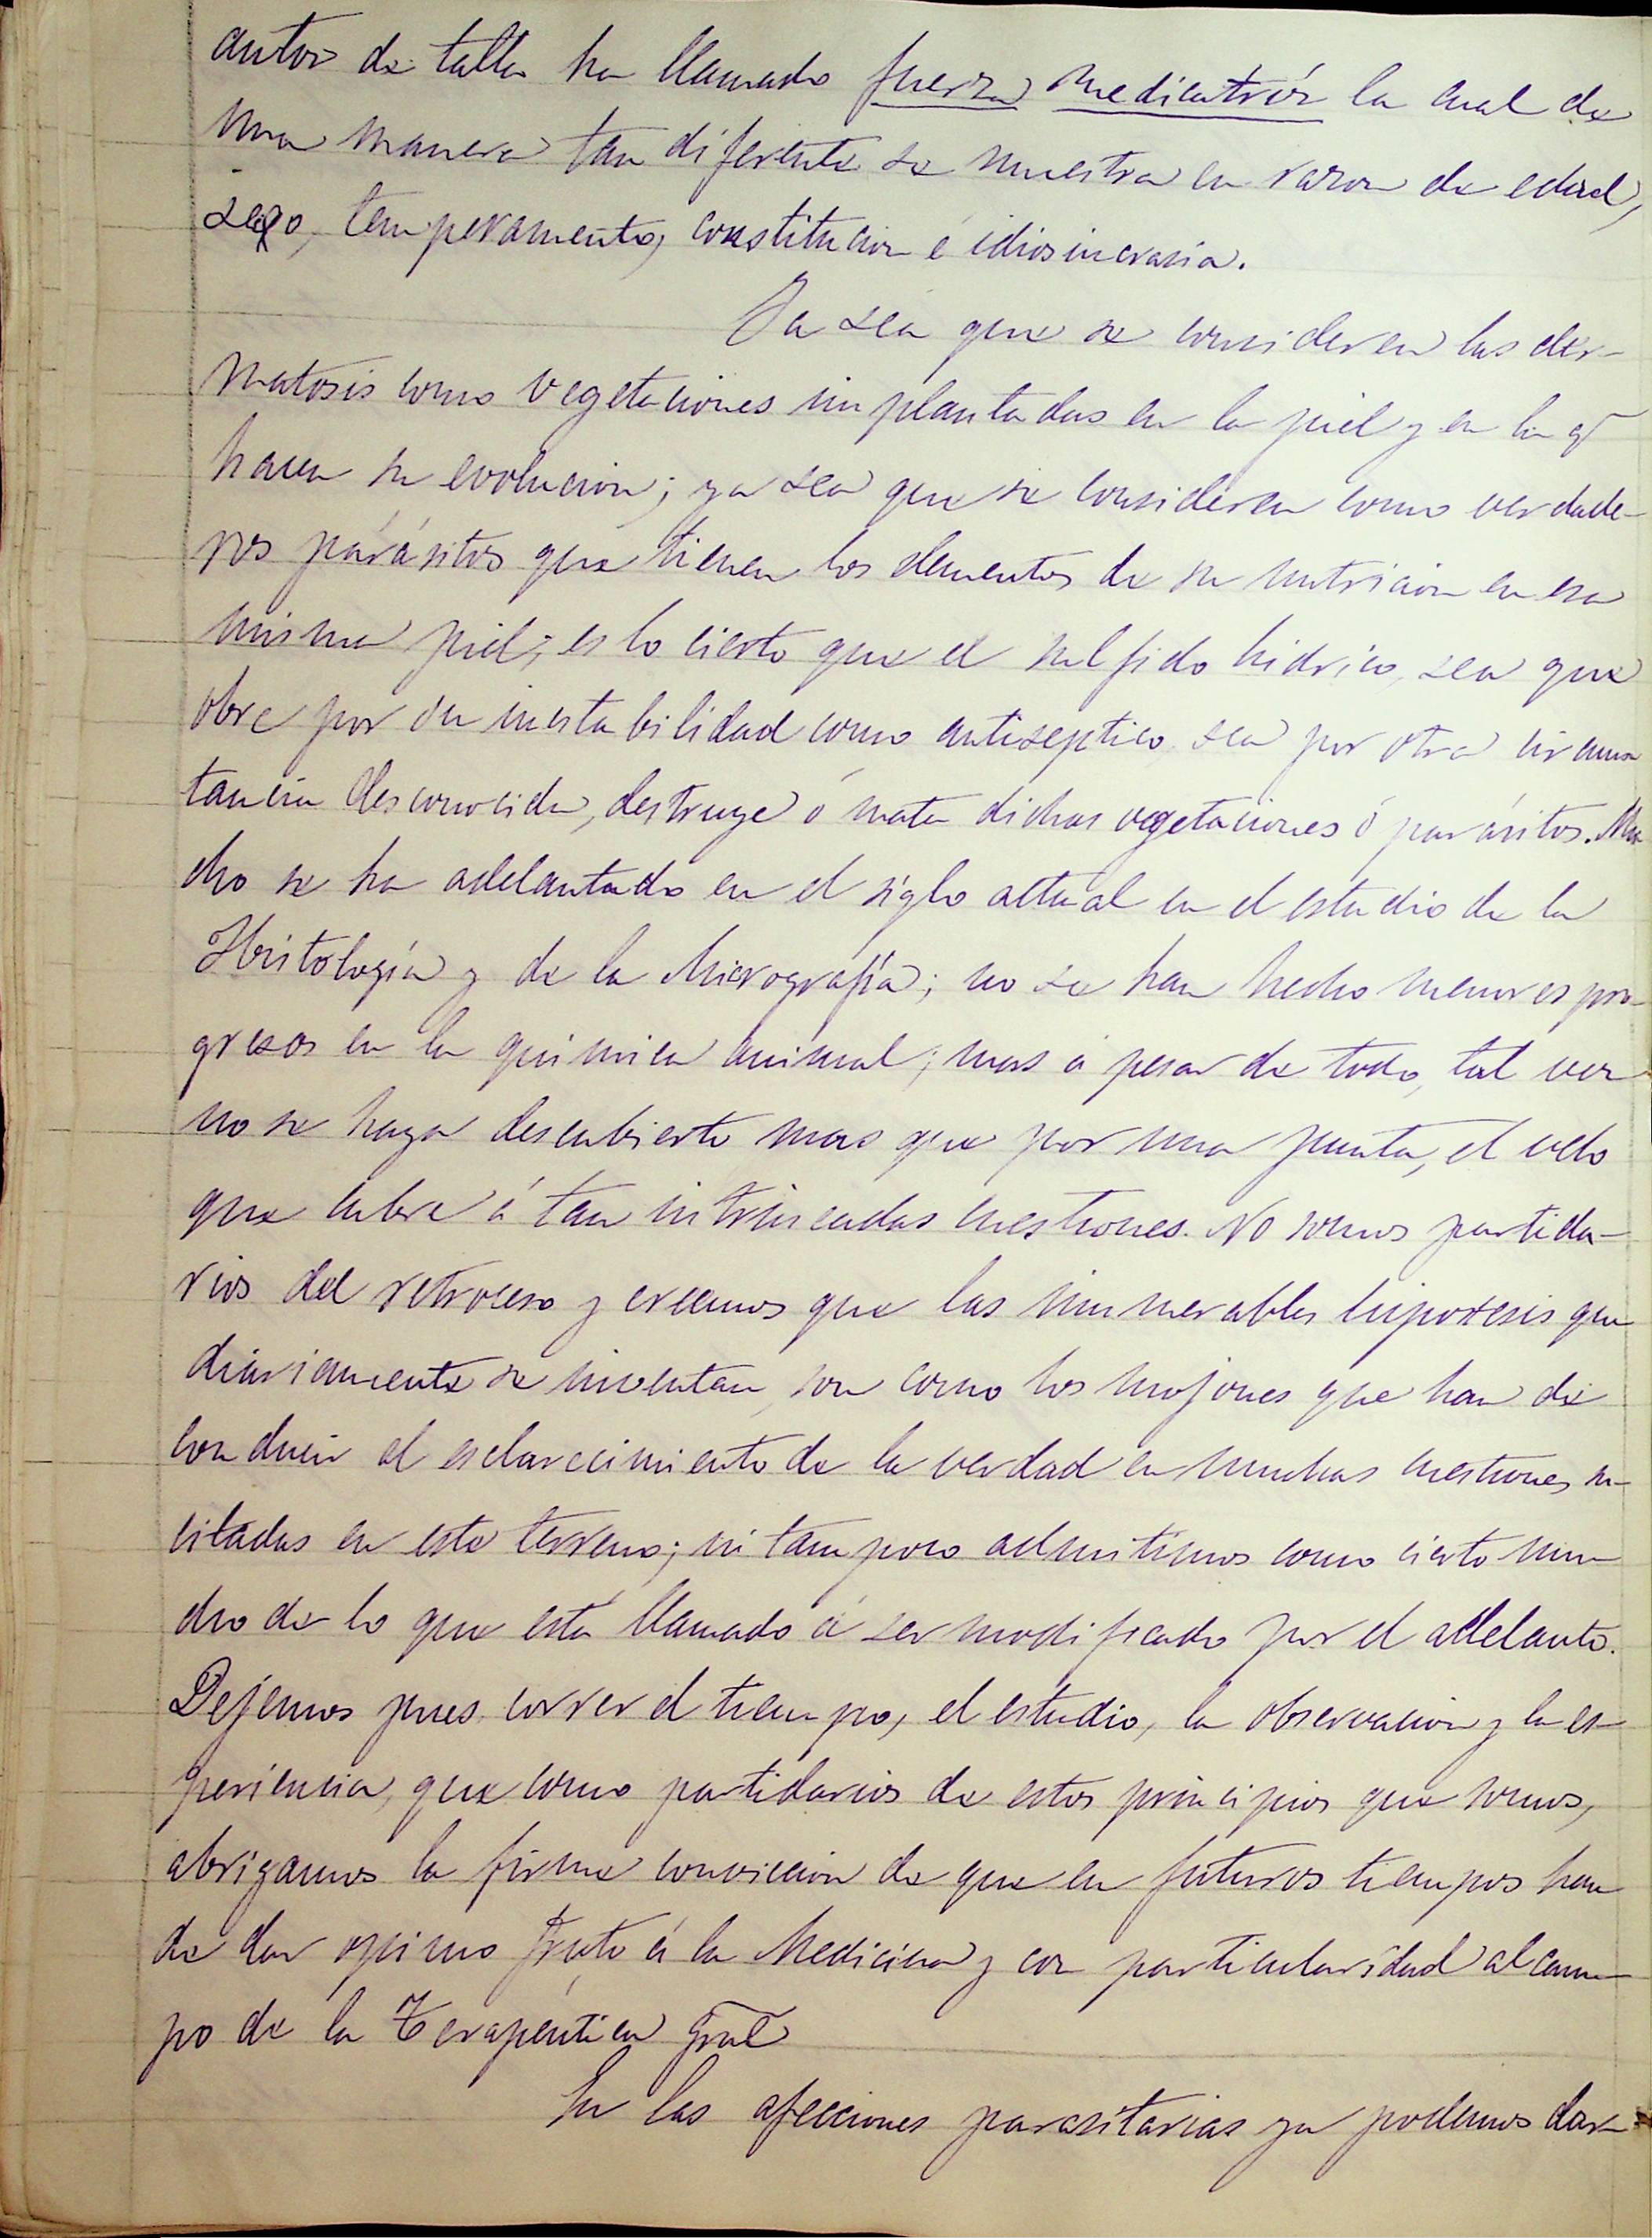 autor de talla ha llamado fuerza medicatriz la cual de
una manera tan diferente se muestra en razon de edad,
sexo, temperamento, constitucion é idiosincrasia.
Ya sea que se consideren las der-
matosis como vegetaciones implantadas en la piel y en la q̃
hacen su evolucion; ya sea que se consideren como verdade-
ros parásitos que tienen los elementos de su nutricion en esa
misma piel; es lo cierto que el sulfido hidrico, sea que
obre por su inestabilidad como antiseptico, sea por otra circuns
tancia desconocida, destruye ó mata dichas vegetaciones ó parásitos. Mu
cho se ha adelantado en el siglo actual en el estudio de la
Histología y de la Micrografía; no se han hecho menores pro-
gresos en la quimica animal; mas á pesar de todo, tal vez
no se haya descubierto mas que por una punta, el velo
que cubre á tan intrincadas cuestiones. No somos partida-
rios del retroceso y creemos que las innumerables hipotesis que
diariamente se inventan, son como los mojones que han de
conducir al esclarecimiento de la verdad en muchas cuestiones su-
citadas en este terreno; ni tampoco admitimos como cierto mu-
cho de lo que está llamado á ser modificado por el adelanto.
Dejemos pues correr el tiempo, el estudio, la observacion y la es-
periencia, que como partidarios de estos principios que somos,
abrigamos la firme conviccion de que en futuros tiempos han
de dar opimo fruto á la Medicina y con particularidad al cam-
po de la Terapéutica gral
En las afecciones parasitarias ya podemos dar-